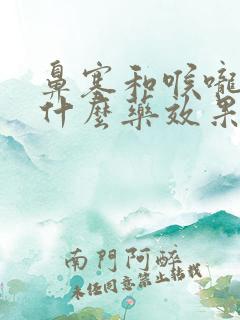 鼻塞和喉嚨
什麼藥效果
南門阿醉
未经同意禁止转载